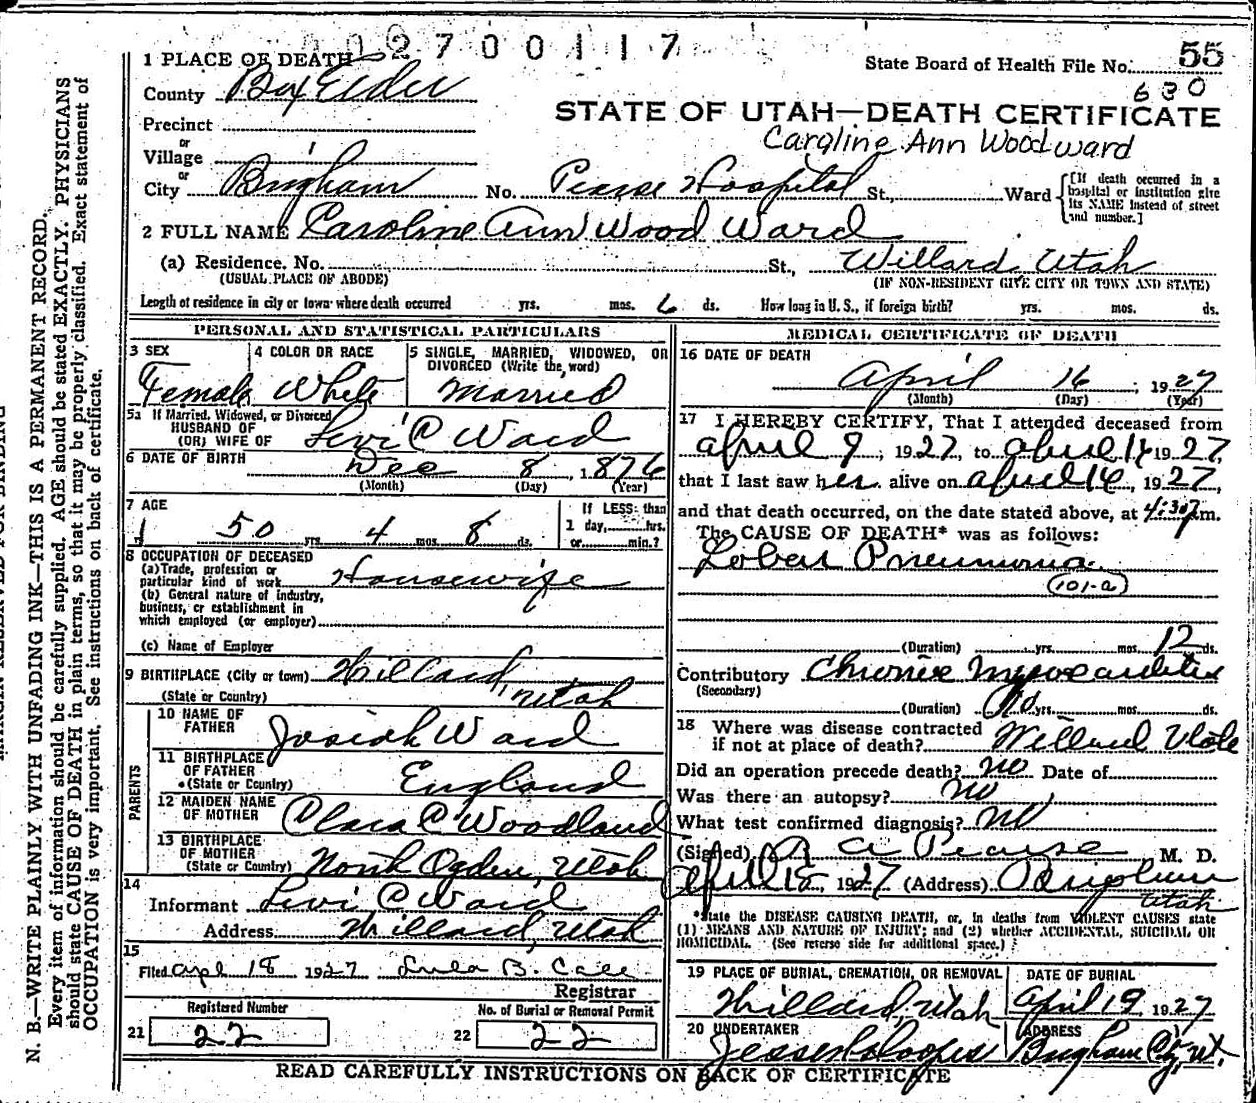 002700117
1 PLACE OF DEATH
State Board of Health File No. 55
630
County Box Elder
STATE OF UTAH—DEATH CERTIFICATE
Precinct
Caroline Ann Woodward
or
Village
or
City Brigham No. Pearse Hospital St., Ward
[If death occurred in a hospital or institution give its NAME instead of street and number.]
2 FULL NAME Caroline Ann Wood Ward
(a) Residence. No. St., Willard, Utah
(USUAL PLACE OF ABODE) (IF NON-RESIDENT GIVE CITY OR TOWN AND STATE)
Length of residence in city or town where death occurred yrs. mos. 6 ds. How long in U. S., if foreign birth? yrs. mos. ds.
PERSONAL AND STATISTICAL PARTICULARS
3 SEX 4 COLOR OR RACE 5 SINGLE, MARRIED, WIDOWED, OR
DIVORCED (Write the word)
Female White Married
5a If Married, Widowed, or Divorced
HUSBAND OF
(OR) WIFE OF Levi C Ward
6 DATE OF BIRTH Dec 8, 1876
(Month) (Day) (Year)
7 AGE If LESS than
1 day, hrs.
50 yrs. 4 mos. 8 ds. or min.?
8 OCCUPATION OF DECEASED
(a) Trade, profession or
particular kind of work Housewife
(b) General nature of industry,
business, or establishment in
which employed (or employer)
(c) Name of Employer
9 BIRTHPLACE (City or town) Willard,
(State or Country) Utah
PARENTS
10 NAME OF
FATHER Josiah W ard
11 BIRTHPLACE
OF FATHER
(State or Country) England
12 MAIDEN NAME
OF MOTHER Clara C Woodland
13 BIRTHPLACE
OF MOTHER
(State or Country) North Ogden, Utah
14
Informant Levi C Ward
Address Willard, Utah
15
Filed Apl 18 1927 Lula B. Call
Registrar
Registered Number No. of Burial or Removal Permit
21 22 22 22
MEDICAL CERTIFICATE OF DEATH
16 DATE OF DEATH
April 16, 1927
(Month) (Day) (Year)
17 I HEREBY CERTIFY, That I attended deceased from
April 9, 1927, to April 16 1927
that I last saw her alive on April 16, 1927,
and that death occurred, on the date stated above, at 4:30 P m.
The CAUSE OF DEATH* was as follows:
Lobar Pneumonia
101-a
(Duration) yrs. mos. 12 ds.
Contributory Chronic Myocarditis
(Secondary)
(Duration) 10 yrs. mos. ds.
18 Where was disease contracted
if not at place of death? Willard Utah
Did an operation precede death? no Date of
Was there an autopsy? no
What test confirmed diagnosis? no
(Signed) R A Pearse M. D.
April 18, 1927 (Address) Brigham
Utah
*State the DISEASE CAUSING DEATH, or, in deaths from VIOLENT CAUSES state
(1) MEANS AND NATURE OF INJURY; and (2) whether ACCIDENTAL, SUICIDAL OR
HOMICIDAL. (See reverse side for additional space.)
19 PLACE OF BURIAL, CREMATION, OR REMOVAL DATE OF BURIAL
Willard, Utah April 19, 1927
20 UNDERTAKER ADDRESS
Brigham City, Ut.
READ CAREFULLY INSTRUCTIONS ON BACK OF CERTIFICATE
N. B.—WRITE PLAINLY WITH UNFADING INK—THIS IS A PERMANENT RECORD.
Every item of information should be carefully supplied. AGE should be stated EXACTLY. PHYSICIANS
should state CAUSE OF DEATH in plain terms, so that it may be properly classified. Exact statement of
OCCUPATION is very important. See instructions on back of certificate.